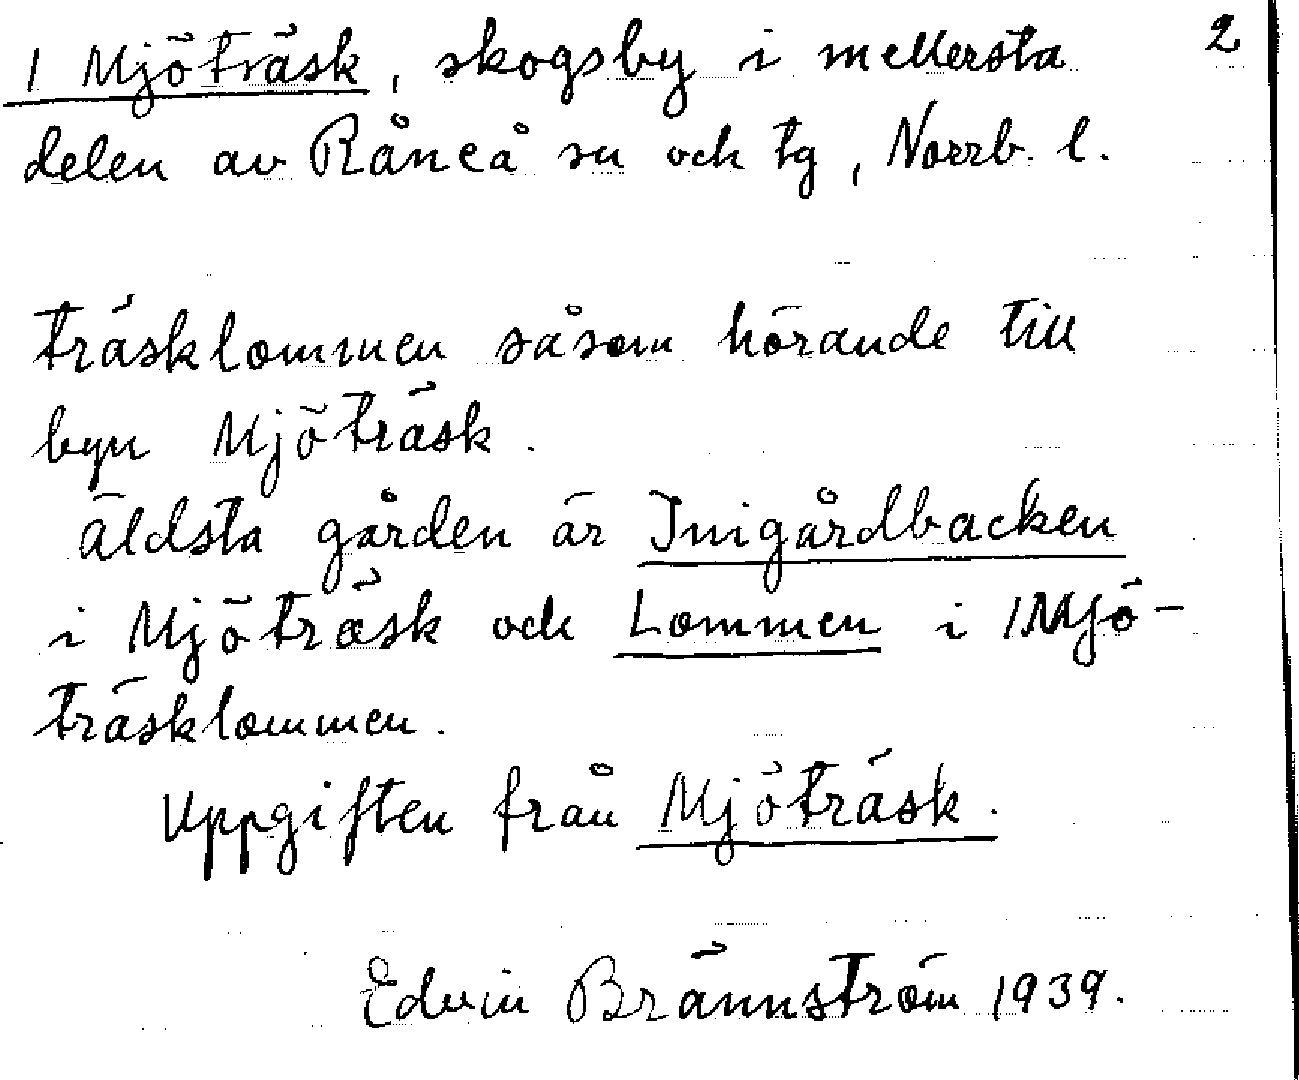 1 Mjöträsk, skogsby i mellersta 2
delen av Råneå sn och tg, Norrb. l.
träsklommen såsom hörande till
byn Mjöträsk.
Äldsta gården är Inigårdbacken
i Mjöträsk och Lommen i Mjö-
träsklommen.
Uppgiften från Mjöträsk.
Edvin Brännström 1939.